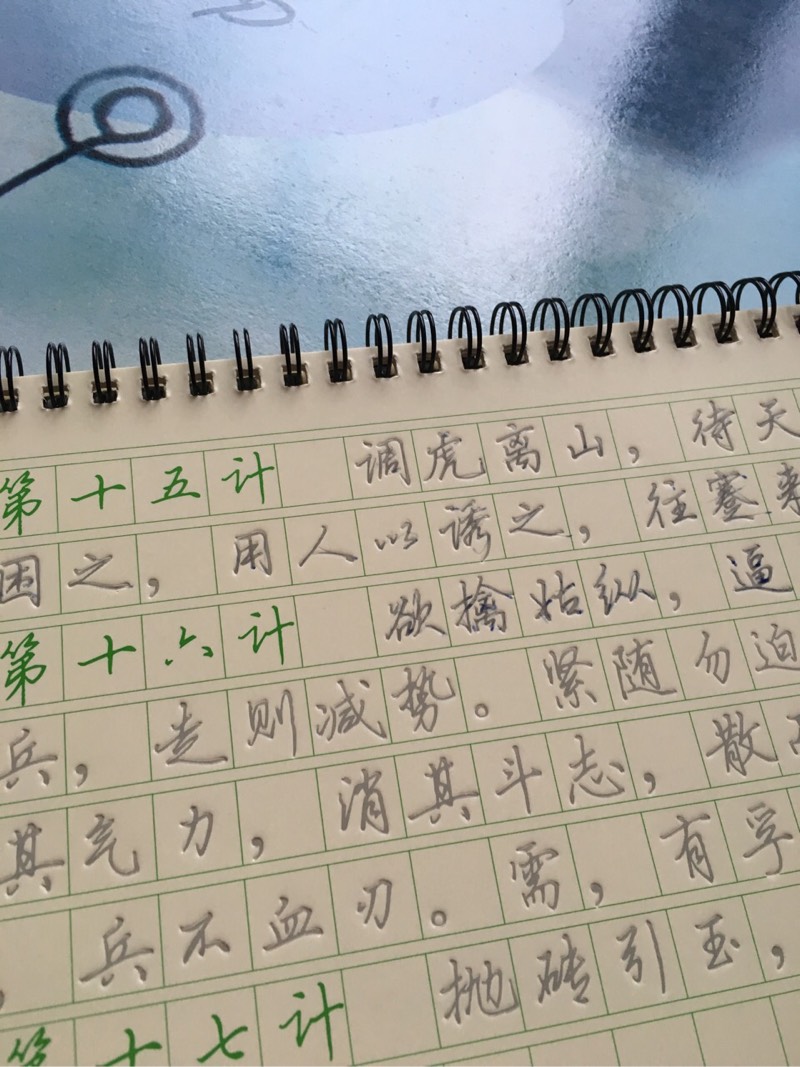 第十五计 调虎离山，待天
困之，用人以诱之，往蹇来
第十六计 欲擒姑纵，逼
兵，走则减势。紧随勿迫
其气力，消其斗志，散
，兵不血刃。需，有孚
第十七计 抛砖引玉，